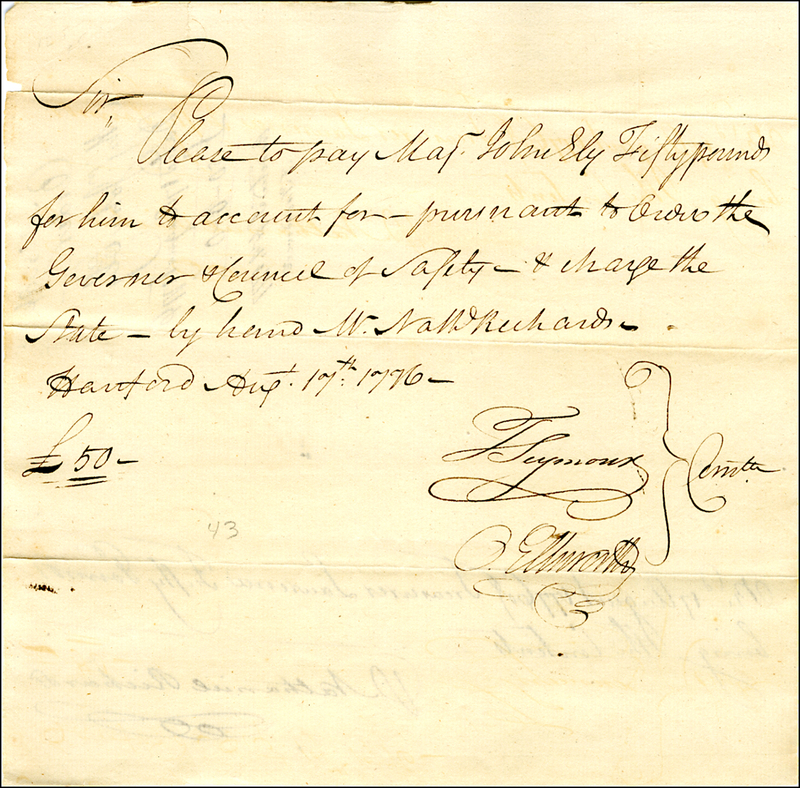 Sir,
Please to pay Maj.r John Ely Fifty pounds
for him to account for – pursuant to Order the
Governer & Council of Safety – & charge the
State – by hand Mr. Nath.l Richards –
Hartford Aug.t 17th. 1776 –
£ 50 –
T Seymour
Comtee
O. Ellsworth
43
Nathaniel Richards